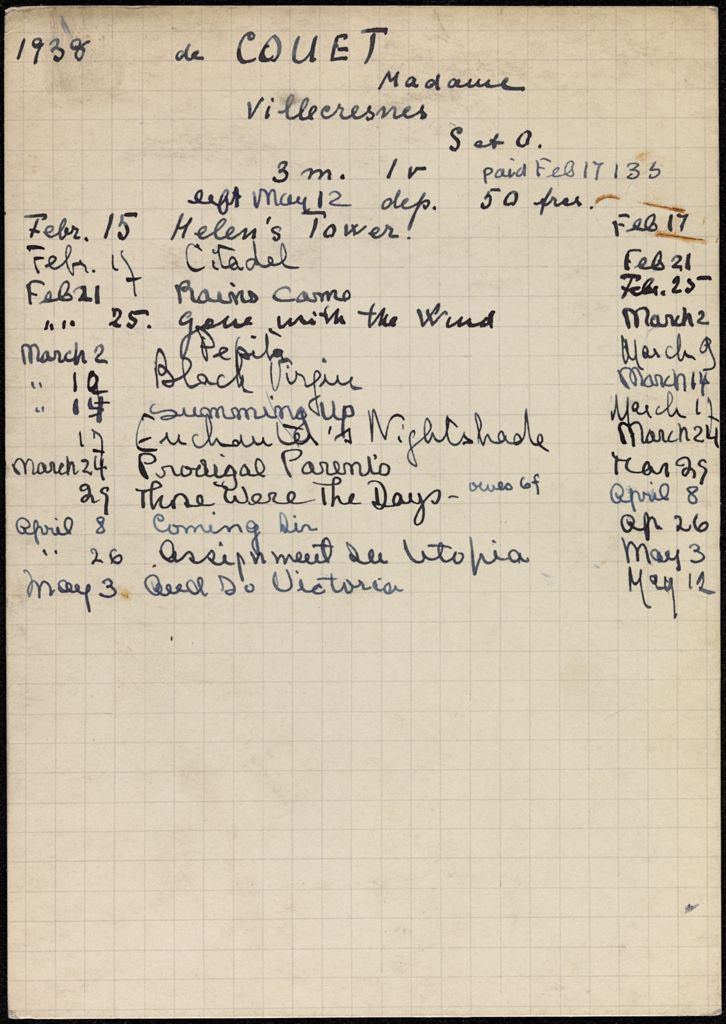 1938 de COUET
Madame
Villecresnes
S et O.
3 m. 1 v paid Feb 17 135
left May 12 dep. 50 frcs.
Febr. 15 Helen's Tower. Feb 17
Febr. 17 Citadel Feb 21
Feb 21 Rains Came Febr. 25
" " 25. Gone with the Wind March 2
March 2 Pepita March 9
" 10 Black Virgin March 14
" 14 Summing Up March 17
17 Enchanter's Nightshade March 24
March 24 Prodigal Parents Mar 29
29 Those Were The Days - owes 6f April 8
April 8 Coming Sir Ap 26
" 26 Assignment In Utopia May 3
May 3 And So Victoria May 12